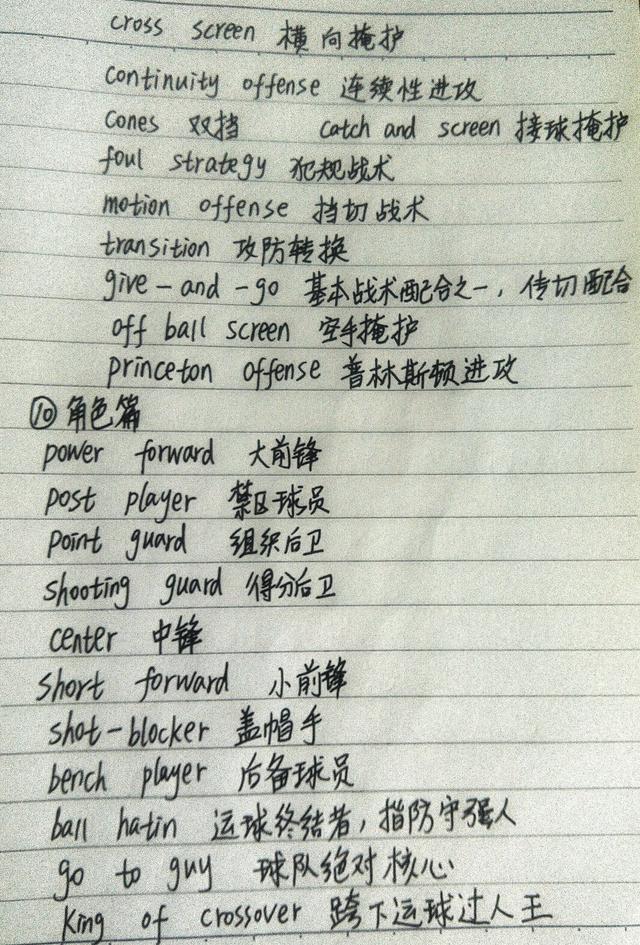 cross screen 横向掩护
continuity offense 连续性进攻
Cones 双挡 catch and screen 接球掩护
foul strategy 犯规战术
motion offense 挡切战术
transition 攻防转换
give-and-go 基本战术配合之一，传切配合
off ball screen 空手掩护
princeton offense 普林斯顿进攻
⑩角色篇
power forward 大前锋
post player 禁区球员
point guard 组织后卫
shooting guard 得分后卫
center 中锋
short forward 小前锋
shot-blocker 盖帽手
bench player 后备球员
ball hatin 运球终结者，指防守强人
go to guy 球队绝对核心
King of crossover 跨下运球过人王